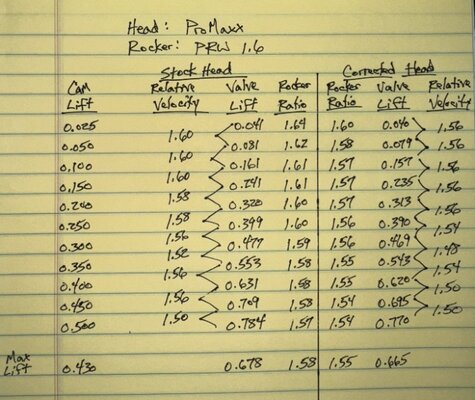 Head: ProMaxx
Rocker: PRW 1.6
Stock Head Corrected Head
Cam Relative Valve Rocker Rocker Valve Relative
Lift Velocity Lift Ratio Ratio Lift Velocity
0.025 0.041 1.64 1.60 0.040
1.60 1.56
0.050 0.081 1.62 1.58 0.079
1.60 1.56
0.100 0.161 1.61 1.57 0.157
1.60 1.56
0.150 0.241 1.61 1.57 0.235
1.58 1.56
0.200 0.320 1.60 1.57 0.313
1.58 1.54
0.250 0.399 1.60 1.56 0.390
1.56
0.300 0.477 1.59 1.56 0.469
1.52 1.48
0.350 0.553 1.58 1.55 0.543
1.56 1.54
0.400 0.631 1.58 1.55 0.620
1.56 1.50
0.450 0.709 1.58 1.54 0.695
1.50 1.50
0.500 0.784 1.57 1.54 0.770
Max
Lift 0.430 0.678 1.58 1.55 0.665